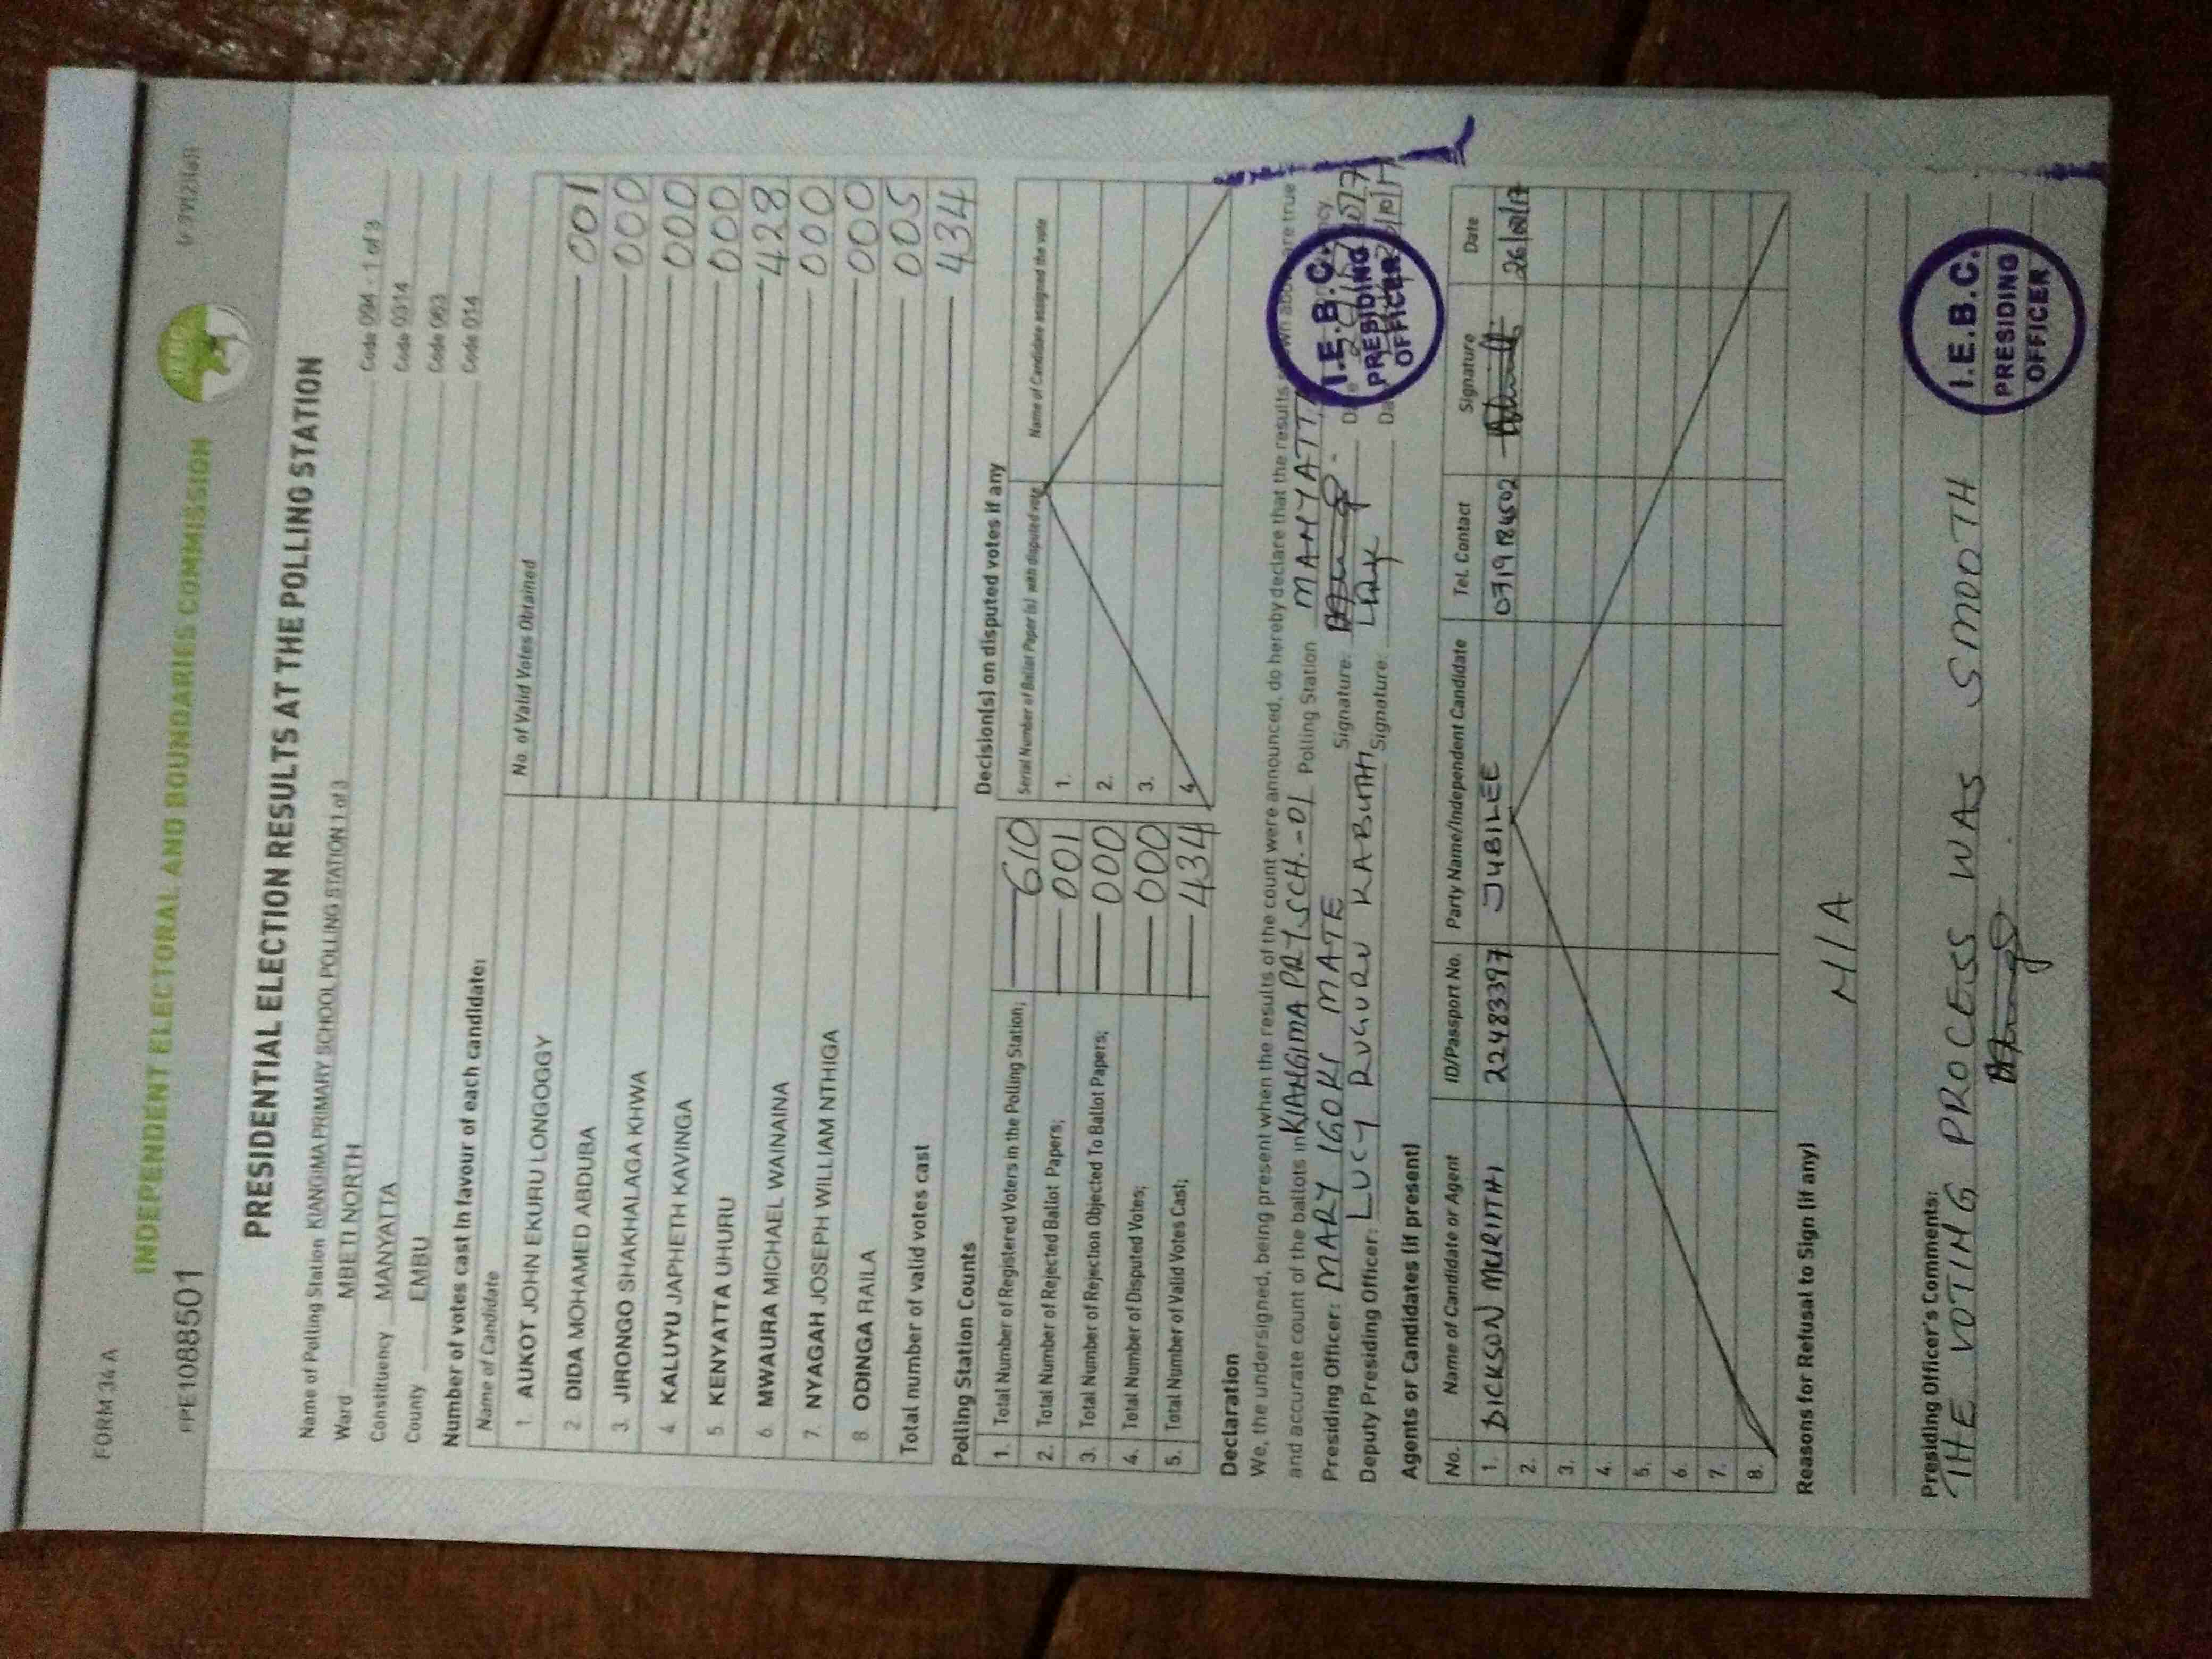 FORM 34A
FPE1088501
INDEPENDENT ELECTORAL AND BOUNDARIES COMMISSION
PRESIDENTIAL ELECTION RESULTS AT THE POLLING STATION
Name of Polling Station KIANGIMA PRIMARY SCHOOL POLLING STATION 1 of 3 Code 094 - 1 of 3
Ward MBETI NORTH Code 0314
Constituency MANYATTA Code 063
County EMBU Code 014
Number of votes cast in favour of each candidate:
Name of Candidate No. of Valid Votes Obtained
1 AUKOT JOHN EKURU LONGOGGY 001
2 DIDA MOHAMED ABDUBA 000
3. JIRONGO SHAKHALAGA KHWA 000
4 KALUYU JAPHETH KAVINGA 000
5 KENYATTA UHURU 428
6. MWAURA MICHAEL WAINAINA 000
7. NYAGAH JOSEPH WILLIAM NTHIGA 000
8. ODINGA RAILA 005
Total number of valid votes cast 434
Polling Station Counts
1. Total Number of Registered Voters in the Polling Station; 610
2. Total Number of Rejected Ballot Papers; 001
3. Total Number of Rejection Objected To Ballot Papers; 000
4. Total Number of Disputed Votes; 000
5. Total Number of Valid Votes Cast; 434
Decision(s) on disputed votes if any
Serial Number of Ballot Paper (s) with disputed vote Name of Candidate assigned the vote
1.
2.
3.
4.
Declaration
We, the undersigned, being present when the results of the count were announced, do hereby declare that the results shown above are true
and accurate count of the ballots in KIANGIMA PRY SCH.-01 Polling Station MANYATTA
Presiding Officer: MARY IGOKI MATE Signature:
Deputy Presiding Officer: LUCY RUGURU KABUTHI Signature:
I.E.B.C.
PRESIDING
OFFICER
Agents or Candidates (if present)
No. Name of Candidate or Agent ID/Passport No. Party Name/Independent Candidate Tel. Contact Signature Date
1. DICKSON MURIITHI 22483397 JUBILEE 0719718402 26/10/17
2.
3.
4.
5.
6.
7.
8.
Reasons for Refusal to Sign (if any)
N/A
Presiding Officer's Comments:
THE VOTING PROCESS WAS SMOOTH
I.E.B.C.
PRESIDING
OFFICER